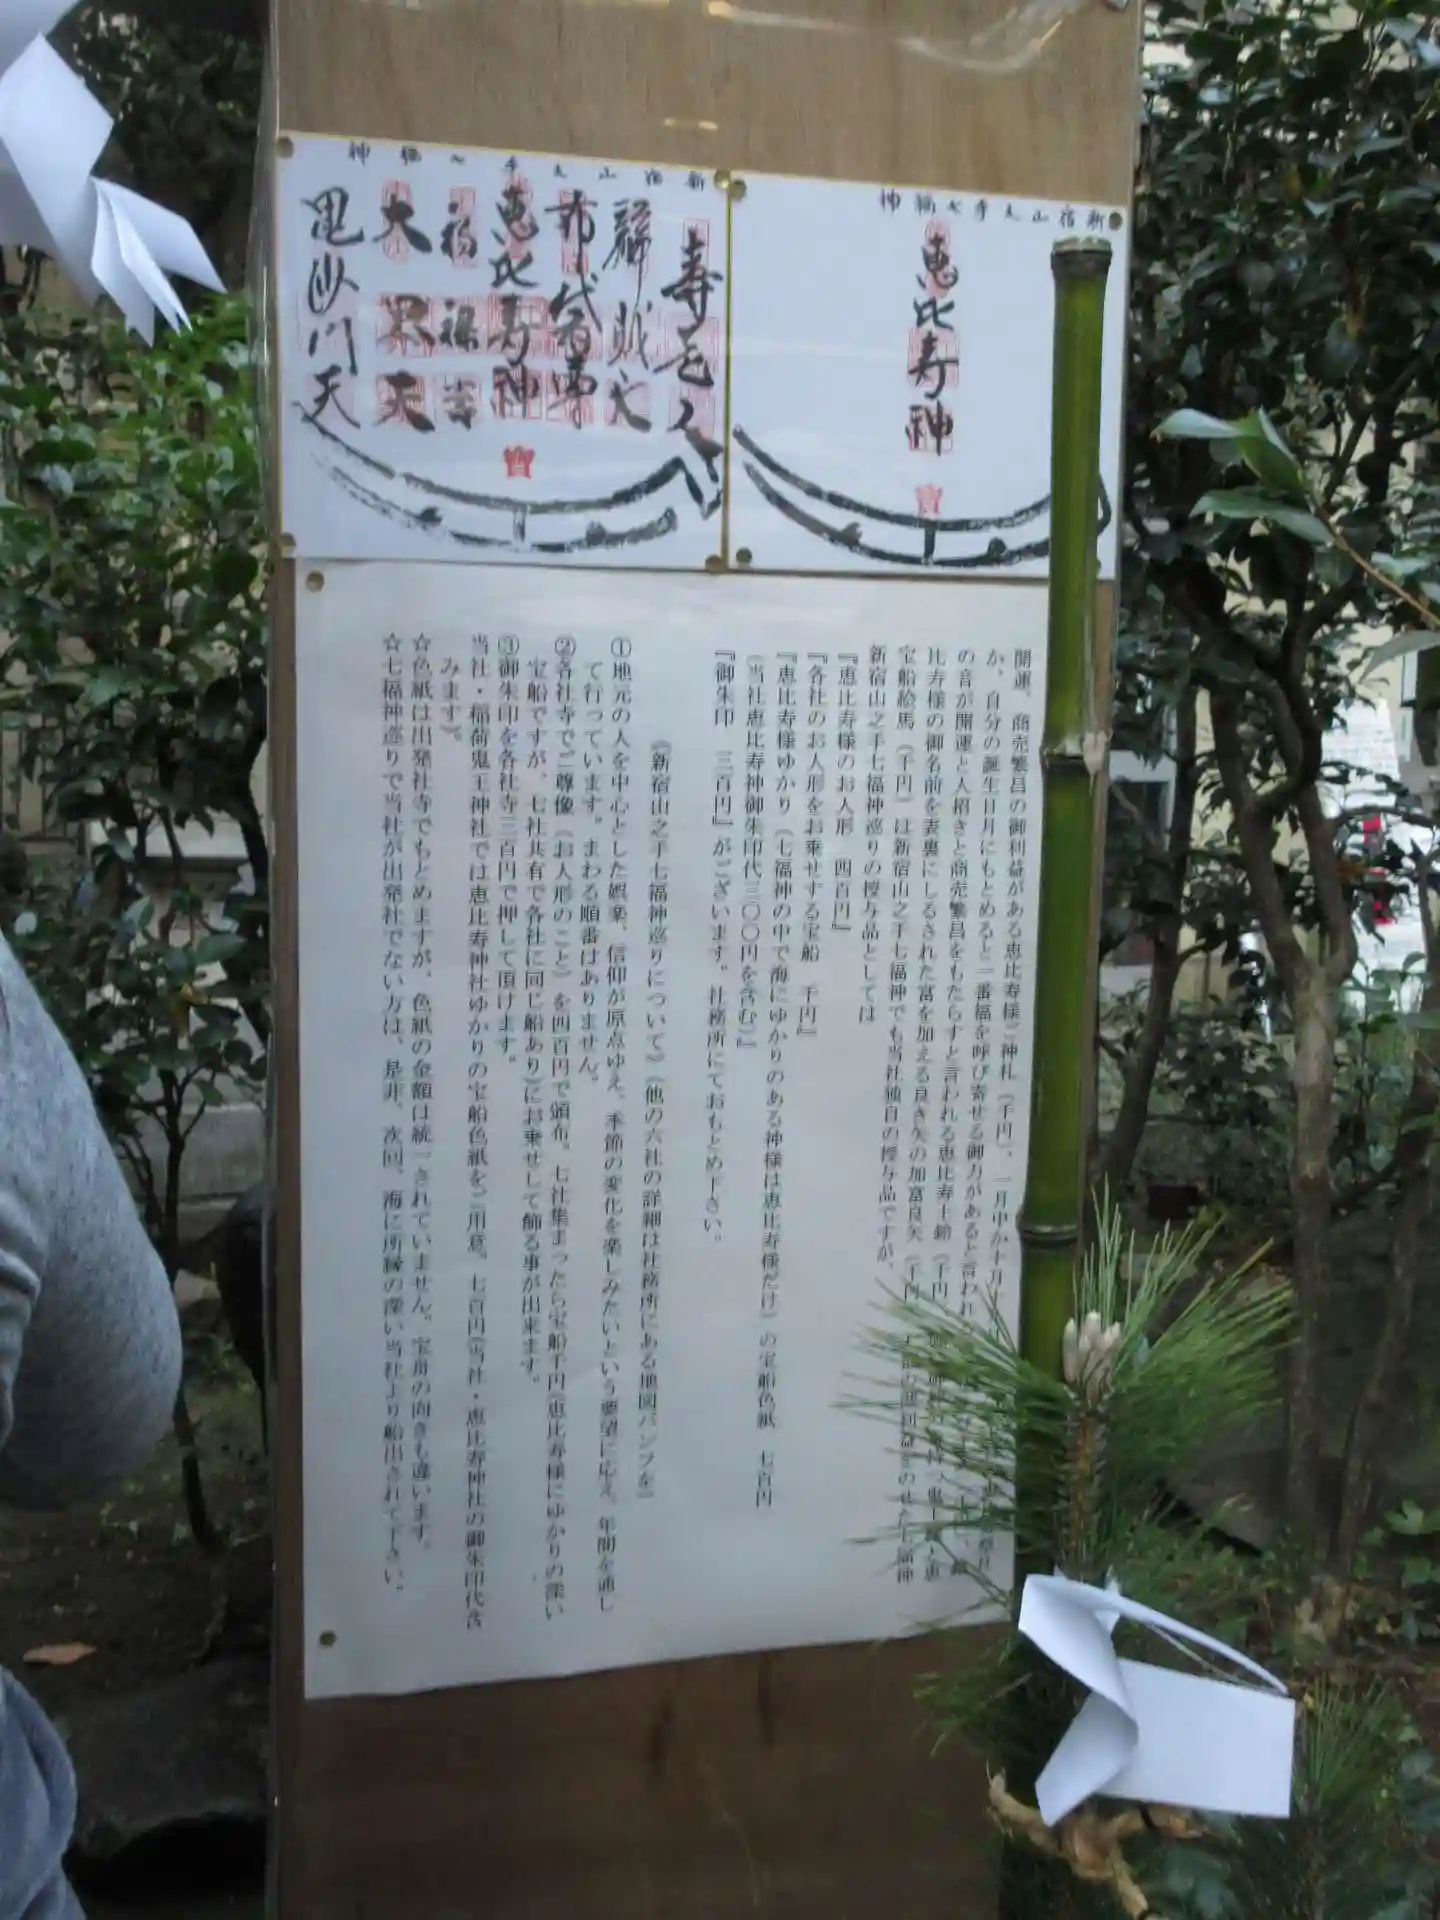 新宿山之手七福神
恵比寿神
寶
新宿山之手七福神
寿老人
辯財天
布袋尊
恵比寿神
福禄寿
大黒天
毘沙門天
寶
開運、商売繁昌の御利益がある恵比寿様ご神札（千円）、一月中か十月
か、自分の誕生日月にもとめると一番福を呼び寄せる御力があると言われ
の音が開運と人招きと商売繁昌をもたらすと言われる恵比寿土鈴（千円
比寿様の御名前を表裏にしるされた富を加える良き矢の加富良矢（千円
宝船絵馬（千円）は新宿山之手七福神でも当社独自の授与品ですが、
新宿山之手七福神巡りの授与品としては
『恵比寿様のお人形　四百円』
『各社のお人形をお乗せする宝船　千円』
『恵比寿様ゆかり（七福神の中で海にゆかりのある神様は恵比寿様だけ）の宝船色紙　七百円
（当社恵比寿神御朱印代三〇〇円を含む）』
『御朱印　三百円』がございます。社務所にておもとめ下さい。
《新宿山之手七福神巡りについて》（他の六社の詳細は社務所にある地図パンフを）
①地元の人を中心とした娯楽、信仰が原点ゆえ、季節の変化を楽しみたいという要望に応え、年間を通し
て行っています。まわる順番はありません。
②各社寺でご尊像（お人形のこと）を四百円で頒布。七社集まったら宝船千円（恵比寿様にゆかりの深い
宝船ですが、七社共有で各社に同じ船あり）にお乗せして飾る事が出来ます。
③御朱印を各社寺三百円で押して頂けます。
当社・稲荷鬼王神社では恵比寿神社ゆかりの宝船色紙をご用意。七百円（当社・恵比寿神社の御朱印代含
みます）。
☆色紙は出発社寺でもとめますが、色紙の金額は統一されていません。宝舟の向きも違います。
☆七福神巡りで当社が出発社でない方は、是非、次回、海に所縁の深い当社より船出されて下さい。